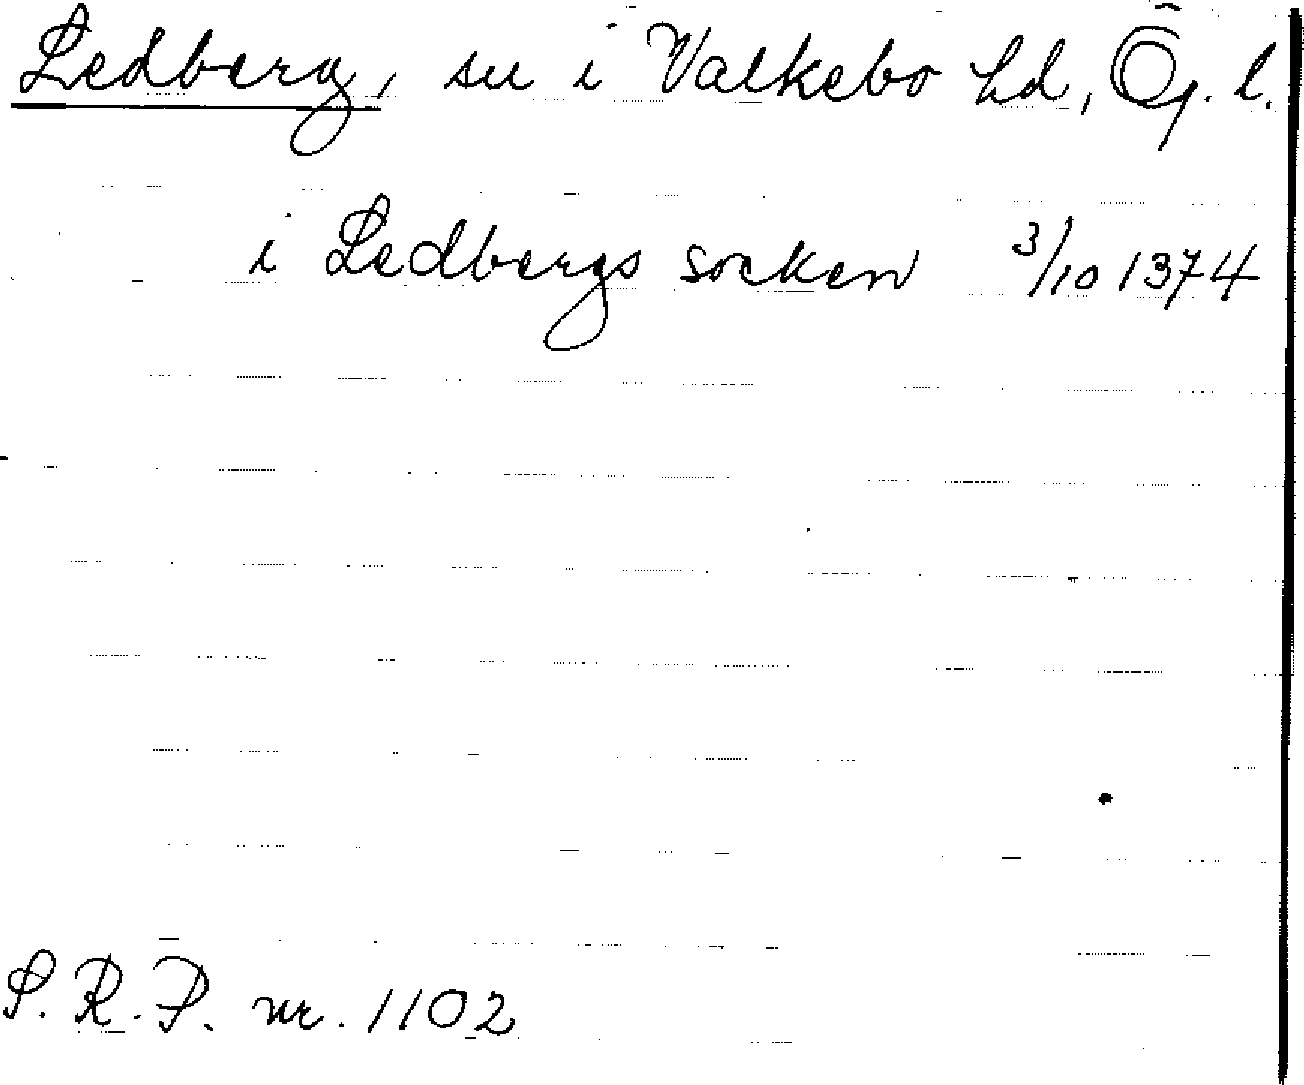 Ledberg, sn i Valkebo hd, Ög. l.
i Ledbergs socken 3/10 1374
S. R. P. nr. 1102